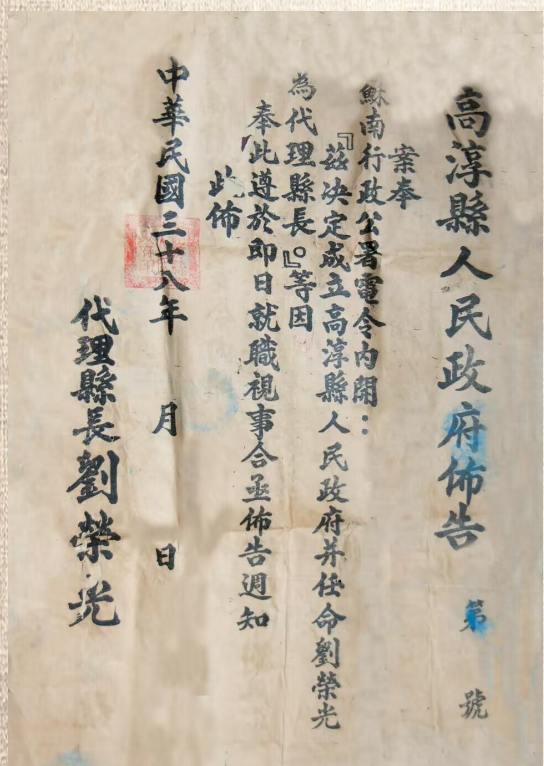 高淳縣人民政府佈告 第 號
案奉
穌南行政公署電令內開：
『茲决定成立高淳縣人民政府并任命劉榮光
為代理縣長。』等因
奉此遵於即日就職視事合亟佈告週知
此佈
中華民國三十八年 月 日
代理縣長劉榮光